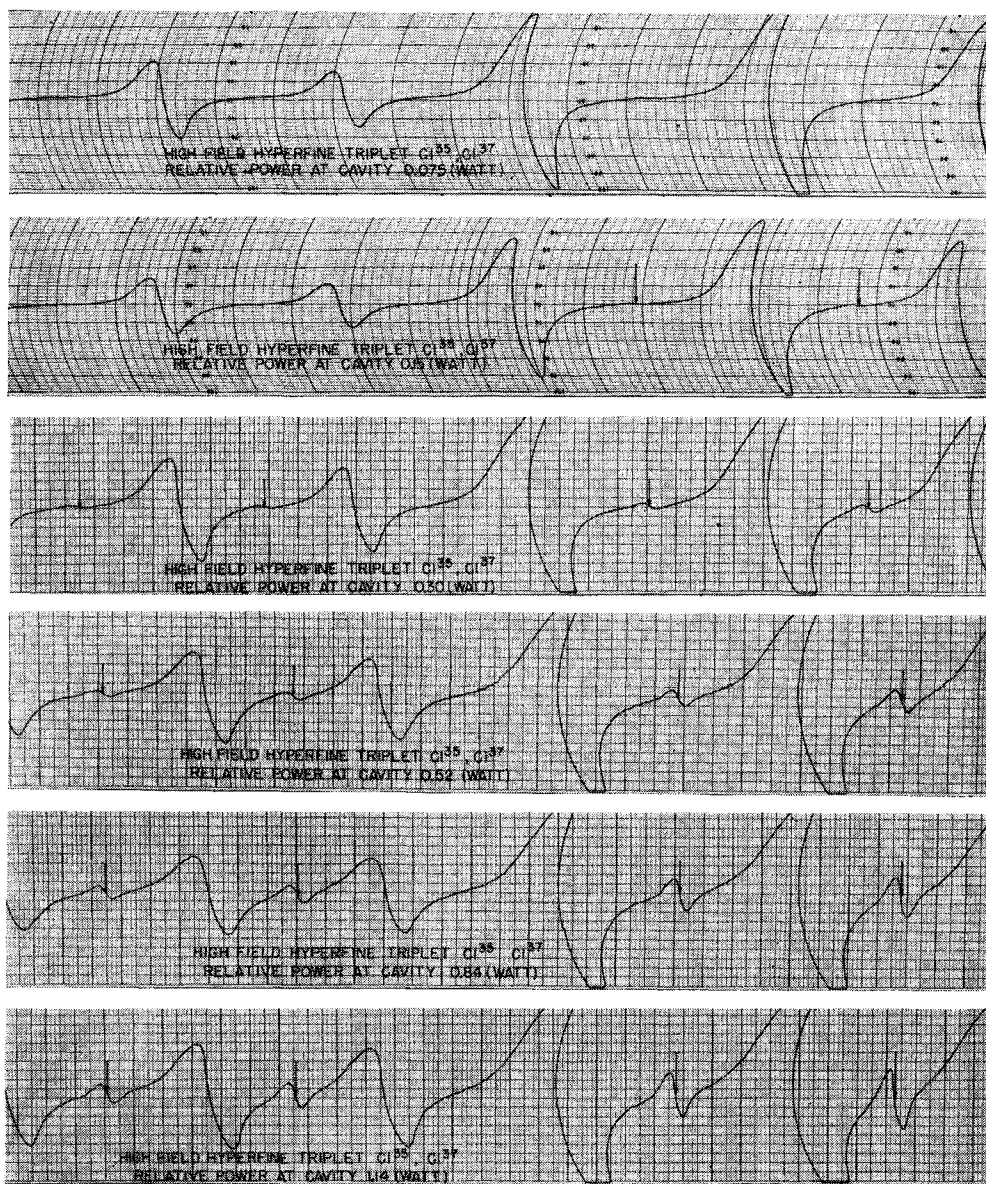 HIGH FIELD HYPERFINE TRIPLET Cl³⁵, Cl³⁷
RELATIVE POWER AT CAVITY 0.075 (WATT)
HIGH FIELD HYPERFINE TRIPLET Cl³⁵ Cl³⁷
RELATIVE POWER AT CAVITY 0.15 (WATT)
HIGH FIELD HYPERFINE TRIPLET Cl³⁵, Cl³⁷
RELATIVE POWER AT CAVITY 0.30 (WATT)
HIGH FIELD HYPERFINE TRIPLET Cl³⁵, Cl³⁷
RELATIVE POWER AT CAVITY 0.52 (WATT)
HIGH FIELD HYPERFINE TRIPLET Cl³⁵ Cl³⁷
RELATIVE POWER AT CAVITY 0.84 (WATT)
HIGH FIELD HYPERFINE TRIPLET Cl³⁵, Cl³⁷
RELATIVE POWER AT CAVITY 1.14 (WATT)